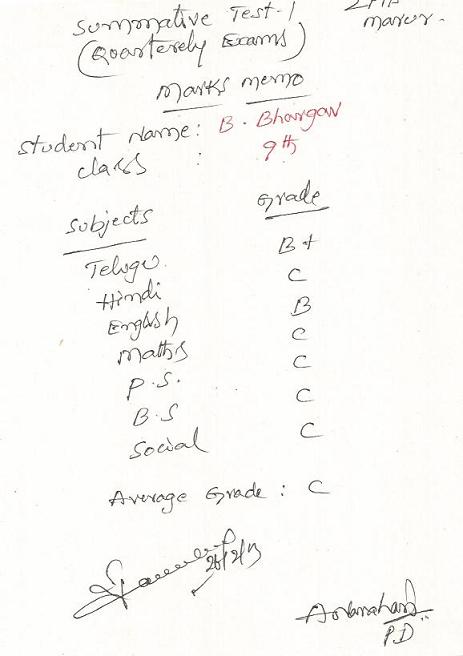 Summative Test-1
(Quarterely Exams)
Marks memo
Student Name: B. Bhargav
class : 9th
Subjects Grade
Telugu B+
Hindi C
English B
Maths C
P.S. C
B.S C
Social C
Average Grade : C
P.D